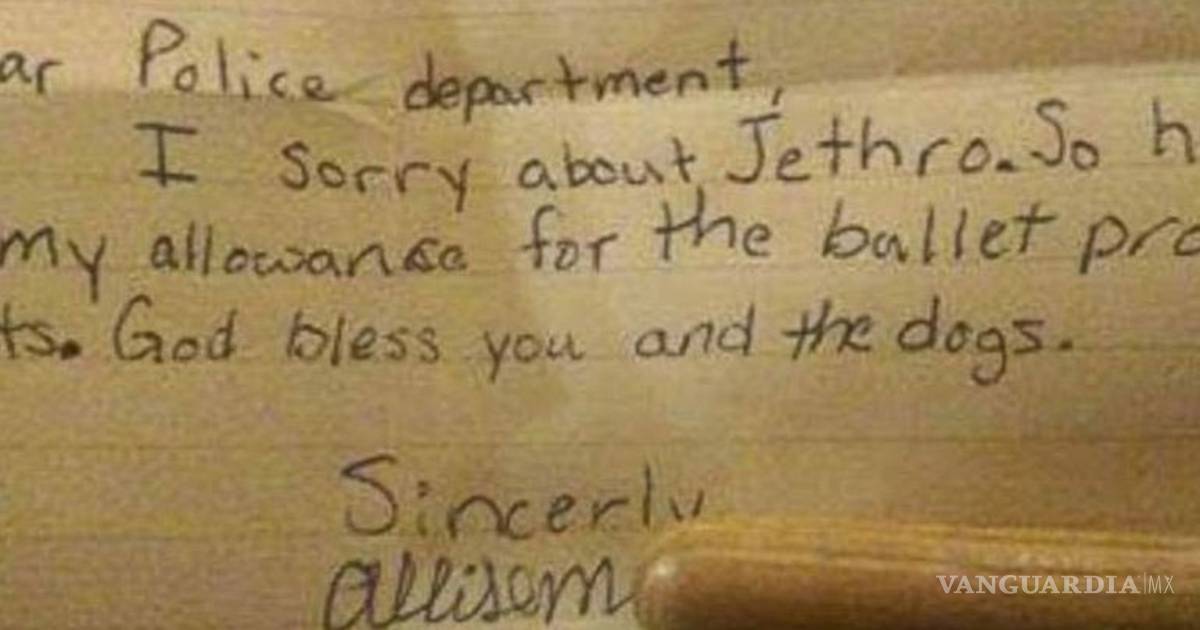 ar Police department,
I sorry about Jethro. So h
my allowance for the ballet pro
ts. God bless you and the dogs.
Sincerly
allison
VANGUARDIA|MX